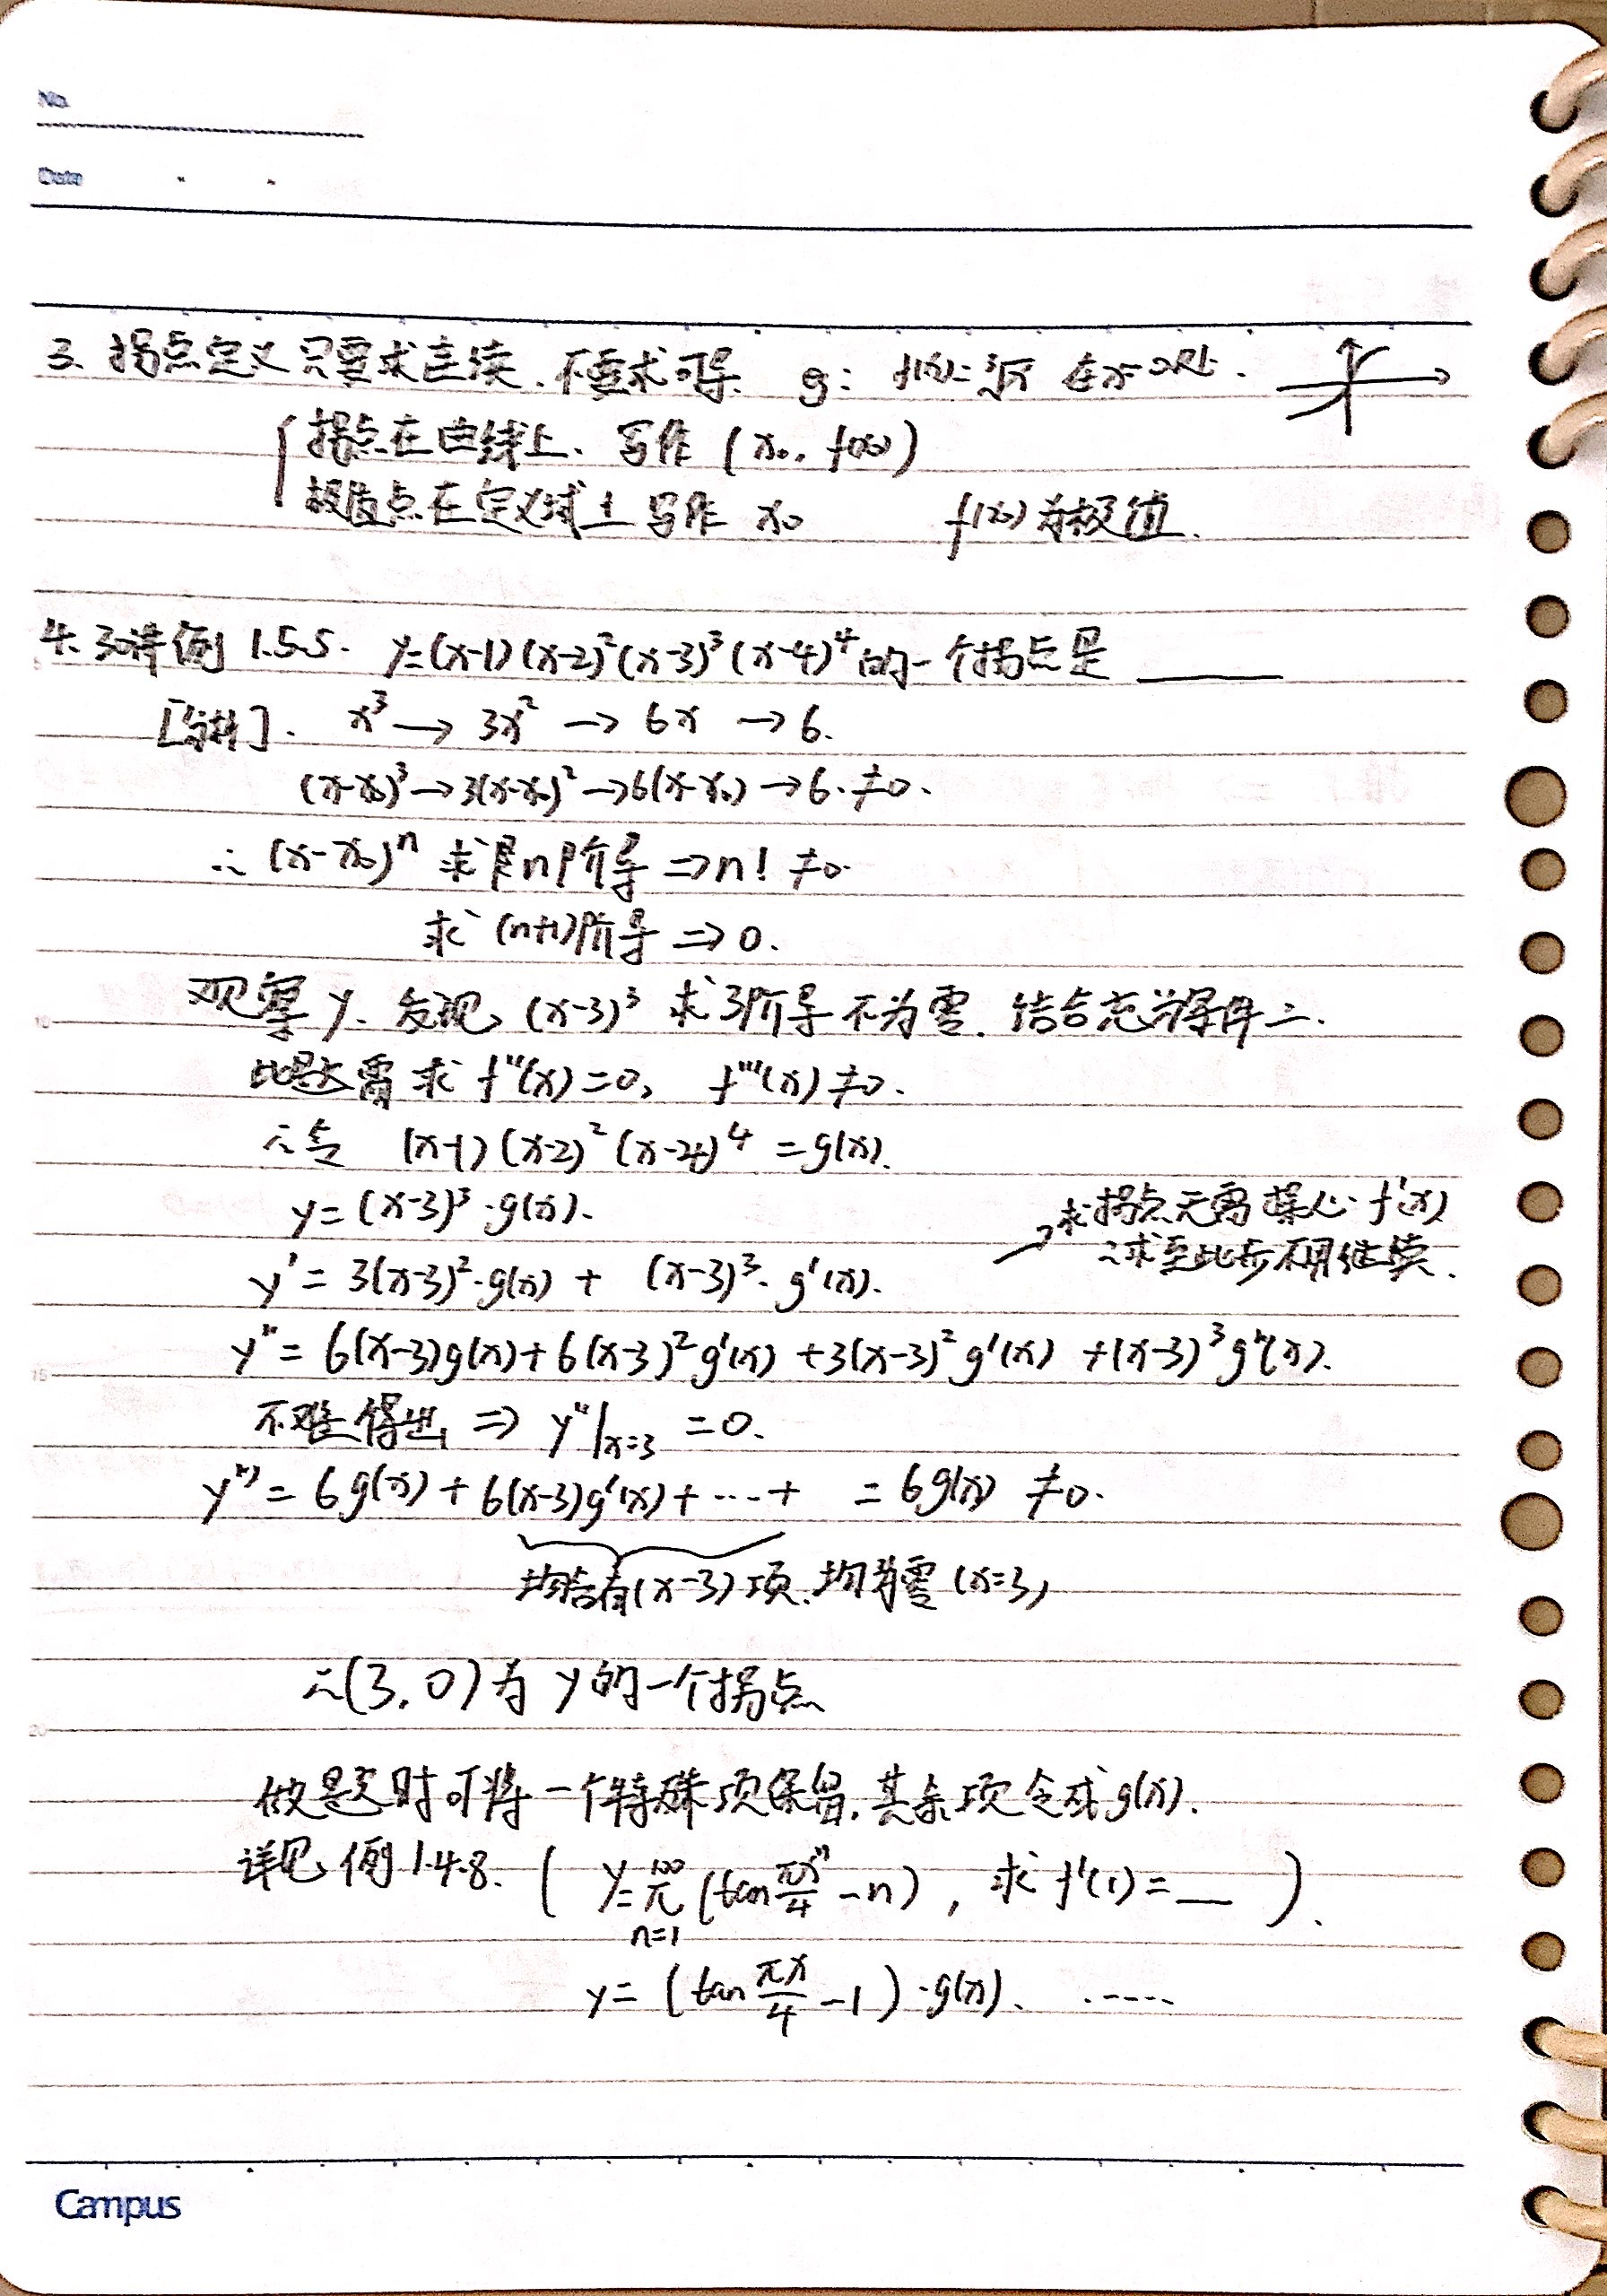 No.
Date
3. 拐点定义只要求连续、不要求可导. eg: f(x)=³√x 在x=0处.
拐点在曲线上、写作 (x₀, f(x₀))
极值点在定义域上 写作 x₀ f(x₀)为极值.
4. 30讲例 1.5.5. y=(x-1)(x-2)²(x-3)³(x-4)⁴的一个拐点是 ____
[分析]. x³→3x²→6x→6.
(x-x₀)³→3(x-x₀)²→6(x-x₀)→6.≠0.
∴(x-x₀)ⁿ 求n阶导⇒n! ≠0.
求(n+1)阶导⇒0.
观察y、发现(x-3)³求3阶导不为零. 结合充分条件二.
此题需求f''(x)=0, f'''(x)≠0.
∴令 (x-1)(x-2)²(x-4)⁴=g(x).
y=(x-3)³·g(x).
求拐点无需操心f'(x)
y'=3(x-3)²·g(x)+(x-3)³·g'(x).
∴求至此步不用继续.
y''=6(x-3)g(x)+6(x-3)²g'(x)+3(x-3)²g'(x)+(x-3)³g''(x).
不难得出⇒y''|x=3 =0.
y'''=6g(x)+6(x-3)g'(x)+……+ =6g(x)≠0.
均含有(x-3)项.均为零(x=3)
∴(3,0)为y的一个拐点
做题时可将一个特殊项保留.其余项令成g(x).
详见例1.4.8. ( y=π n=1 100 (tan πxⁿ/4 -n), 求f'(1)=__ ).
y=(tan πx/4 -1)·g(x). ……
10
15
20
Campus